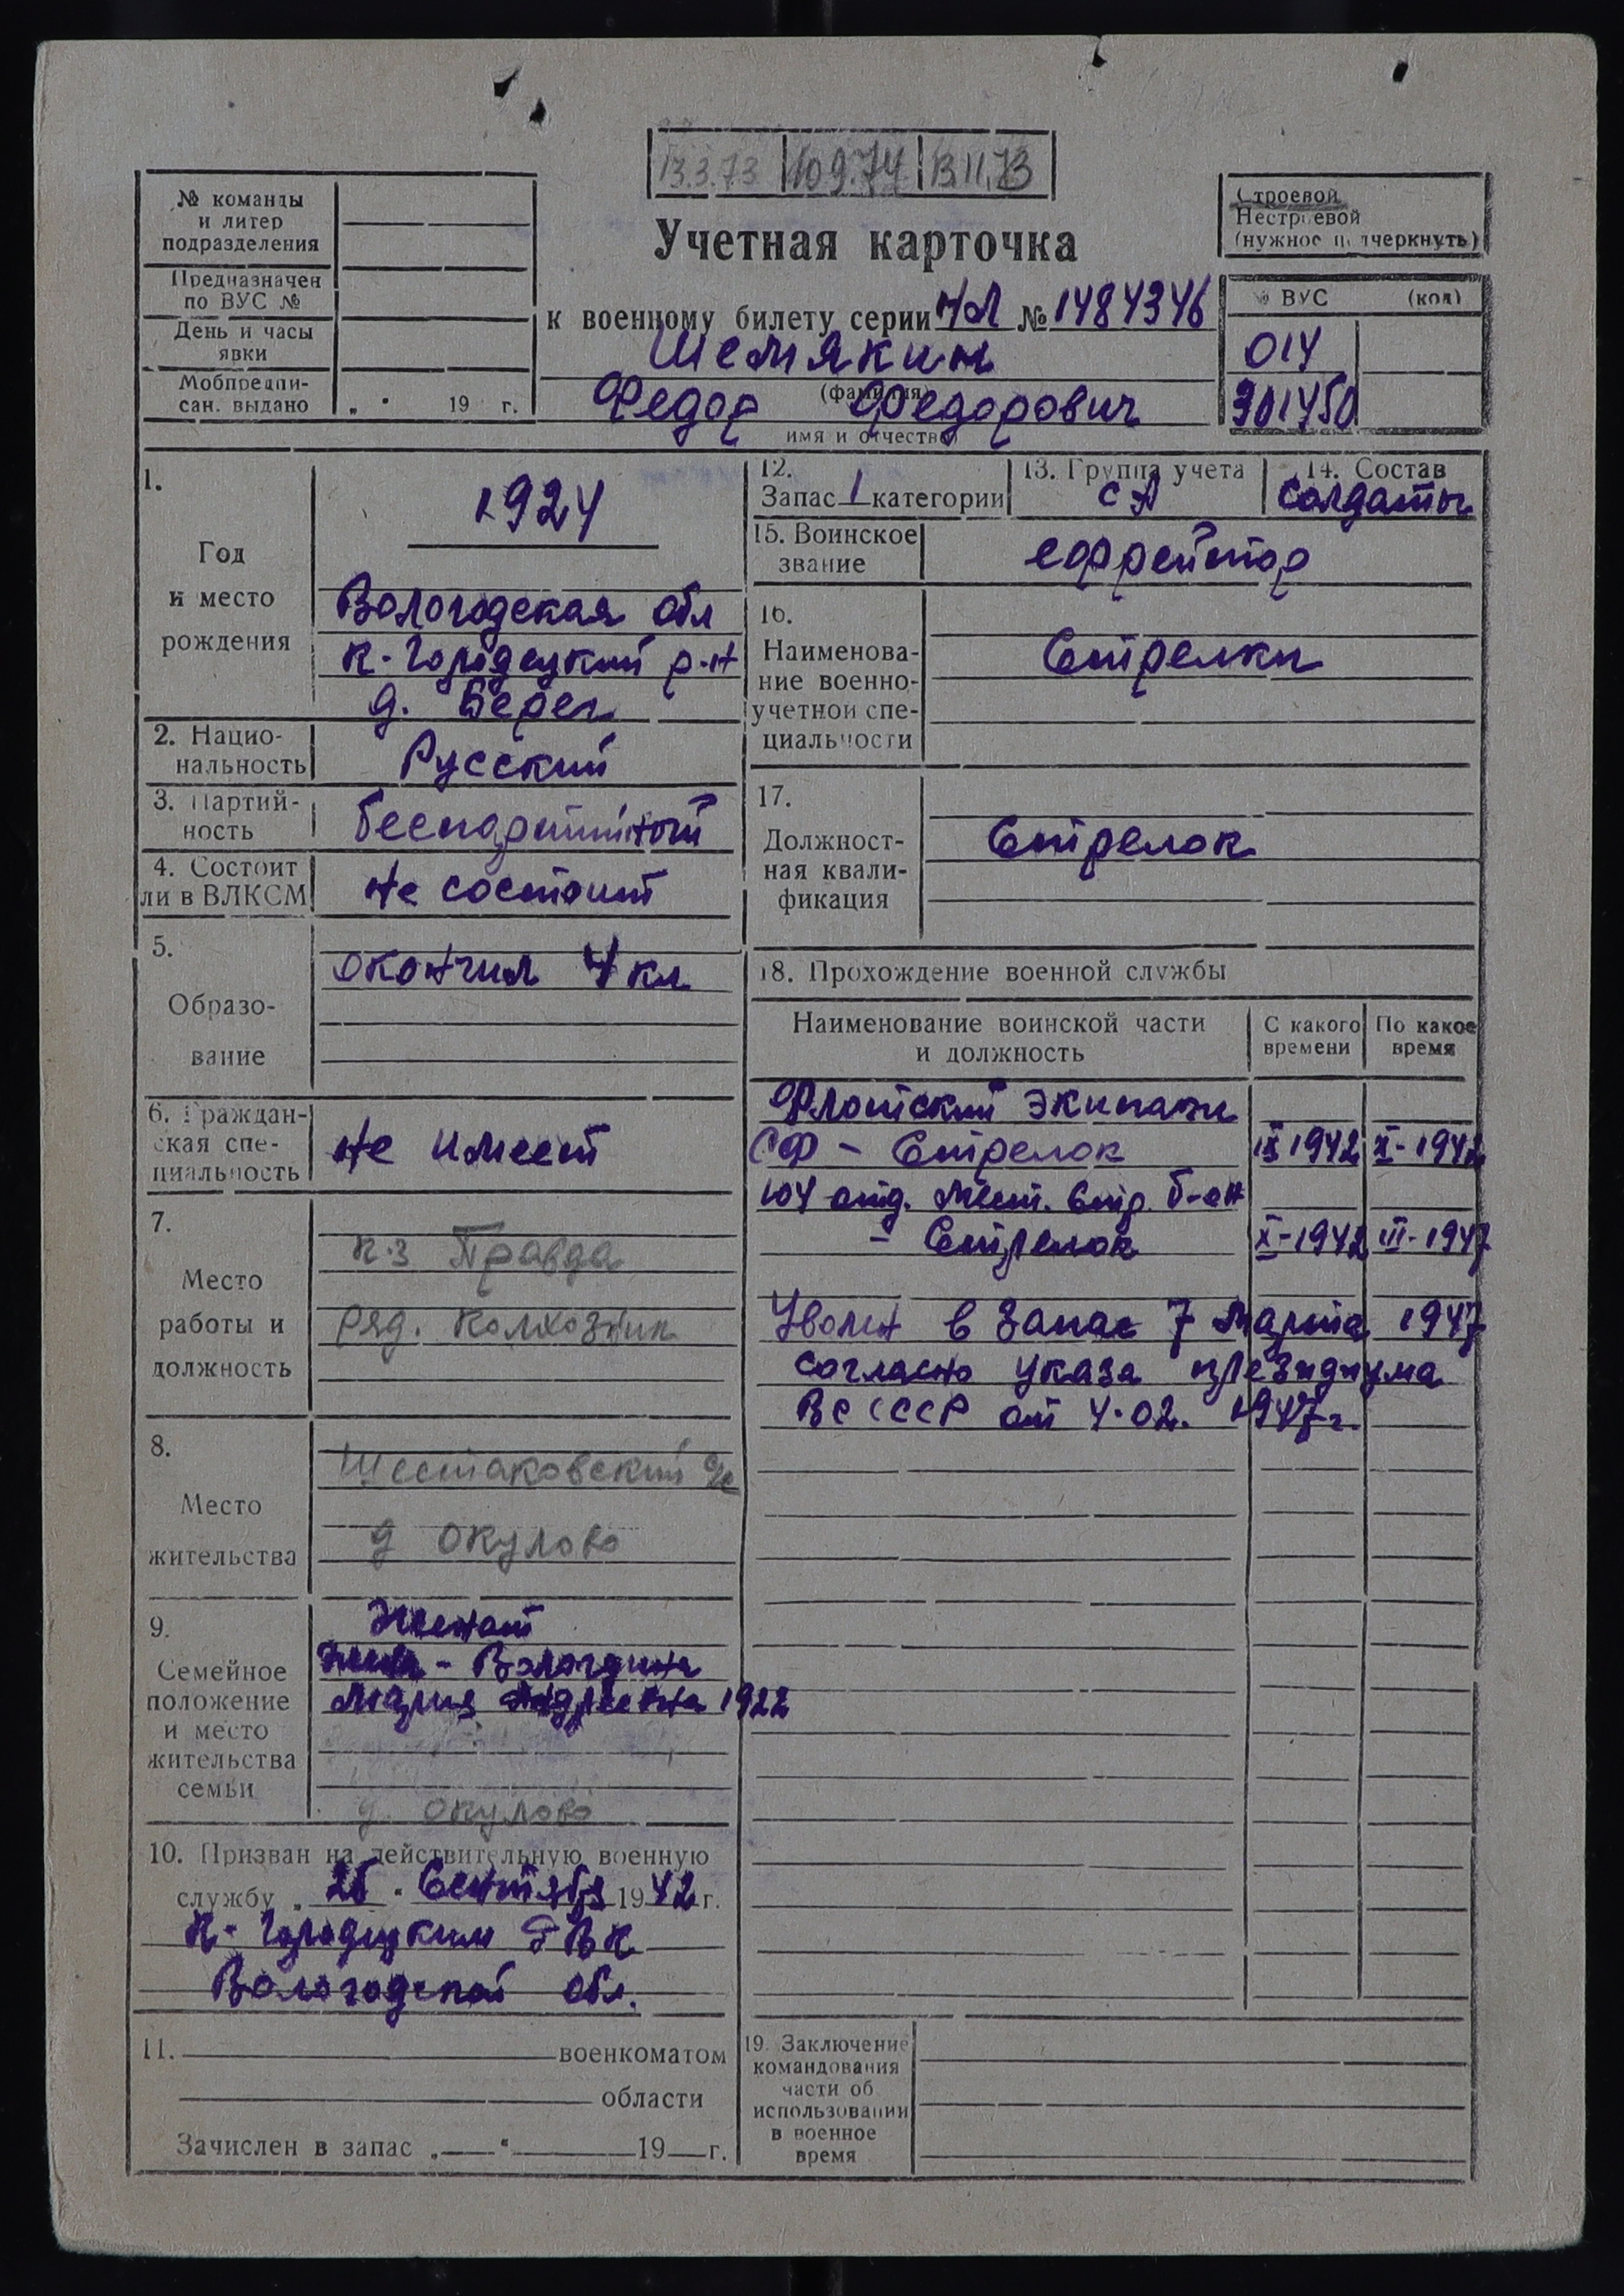 13.3.73 10 9.74 13.11.73
№ команды
и литер
подразделения
Предназначен
по ВУС №
День и часы
явки
Мобпредпи-
сан. выдано „ " 19 г.
Строевой
Нестроевой
(нужное подчеркнуть)
Учетная карточка
к военному билету серии НЛ № 1484346
Шемякин
(фамилия)
Федор Федорович
имя и отчество
№ ВУС (код)
014
901450
1.
Год
и место
рождения
1924
Вологодская обл
К-Городецкий р-н
д. Берег
2. Нацио-
нальность
Русский
3. Партий-
ность
беспартийный
4. Состоит
ли в ВЛКСМ
Не состоит
5.
Образо-
вание
окончил 4 кл
6. Граждан-
ская спе-
циальность
Не имеет
7.
Место
работы и
должность
к-з Правда
ряд. колхозник
8.
Место
жительства
Шестаковский
д Окулово
9.
Семейное
положение
и место
жительства
семьи
Женат
Жена - Вологдина
Мария Андреевна 1922
д. Окулово
10. Призван на действительную военную
службу „ 26 " Сентября 1942 г.
К-Городецким РВК
Вологодской обл.
11. военкоматом
области
Зачислен в запас „ " 19 г.
12.
Запас 1 категории
13. Группа учета
СА
14. Состав
Солдаты
15. Воинское
звание
ефрейтор
16.
Наименова-
ние военно-
учетной спе-
циальности
Стрелки
17.
Должност-
ная квали-
фикация
Стрелок
18. Прохождение военной службы
Наименование воинской части
и должность
С какого
времени
По какое
время
Флотский экипаж
СФ - Стрелок IX 1942 X-1942
104 отд. мест. стр. б-он
- Стрелок X-1942 III-1947
Уволен в запас 7 марта 1947
согласно указа президиума
ВС СССР от 4.02. 1947 г.
19. Заключение
командования
части об
использовании
в военное
время